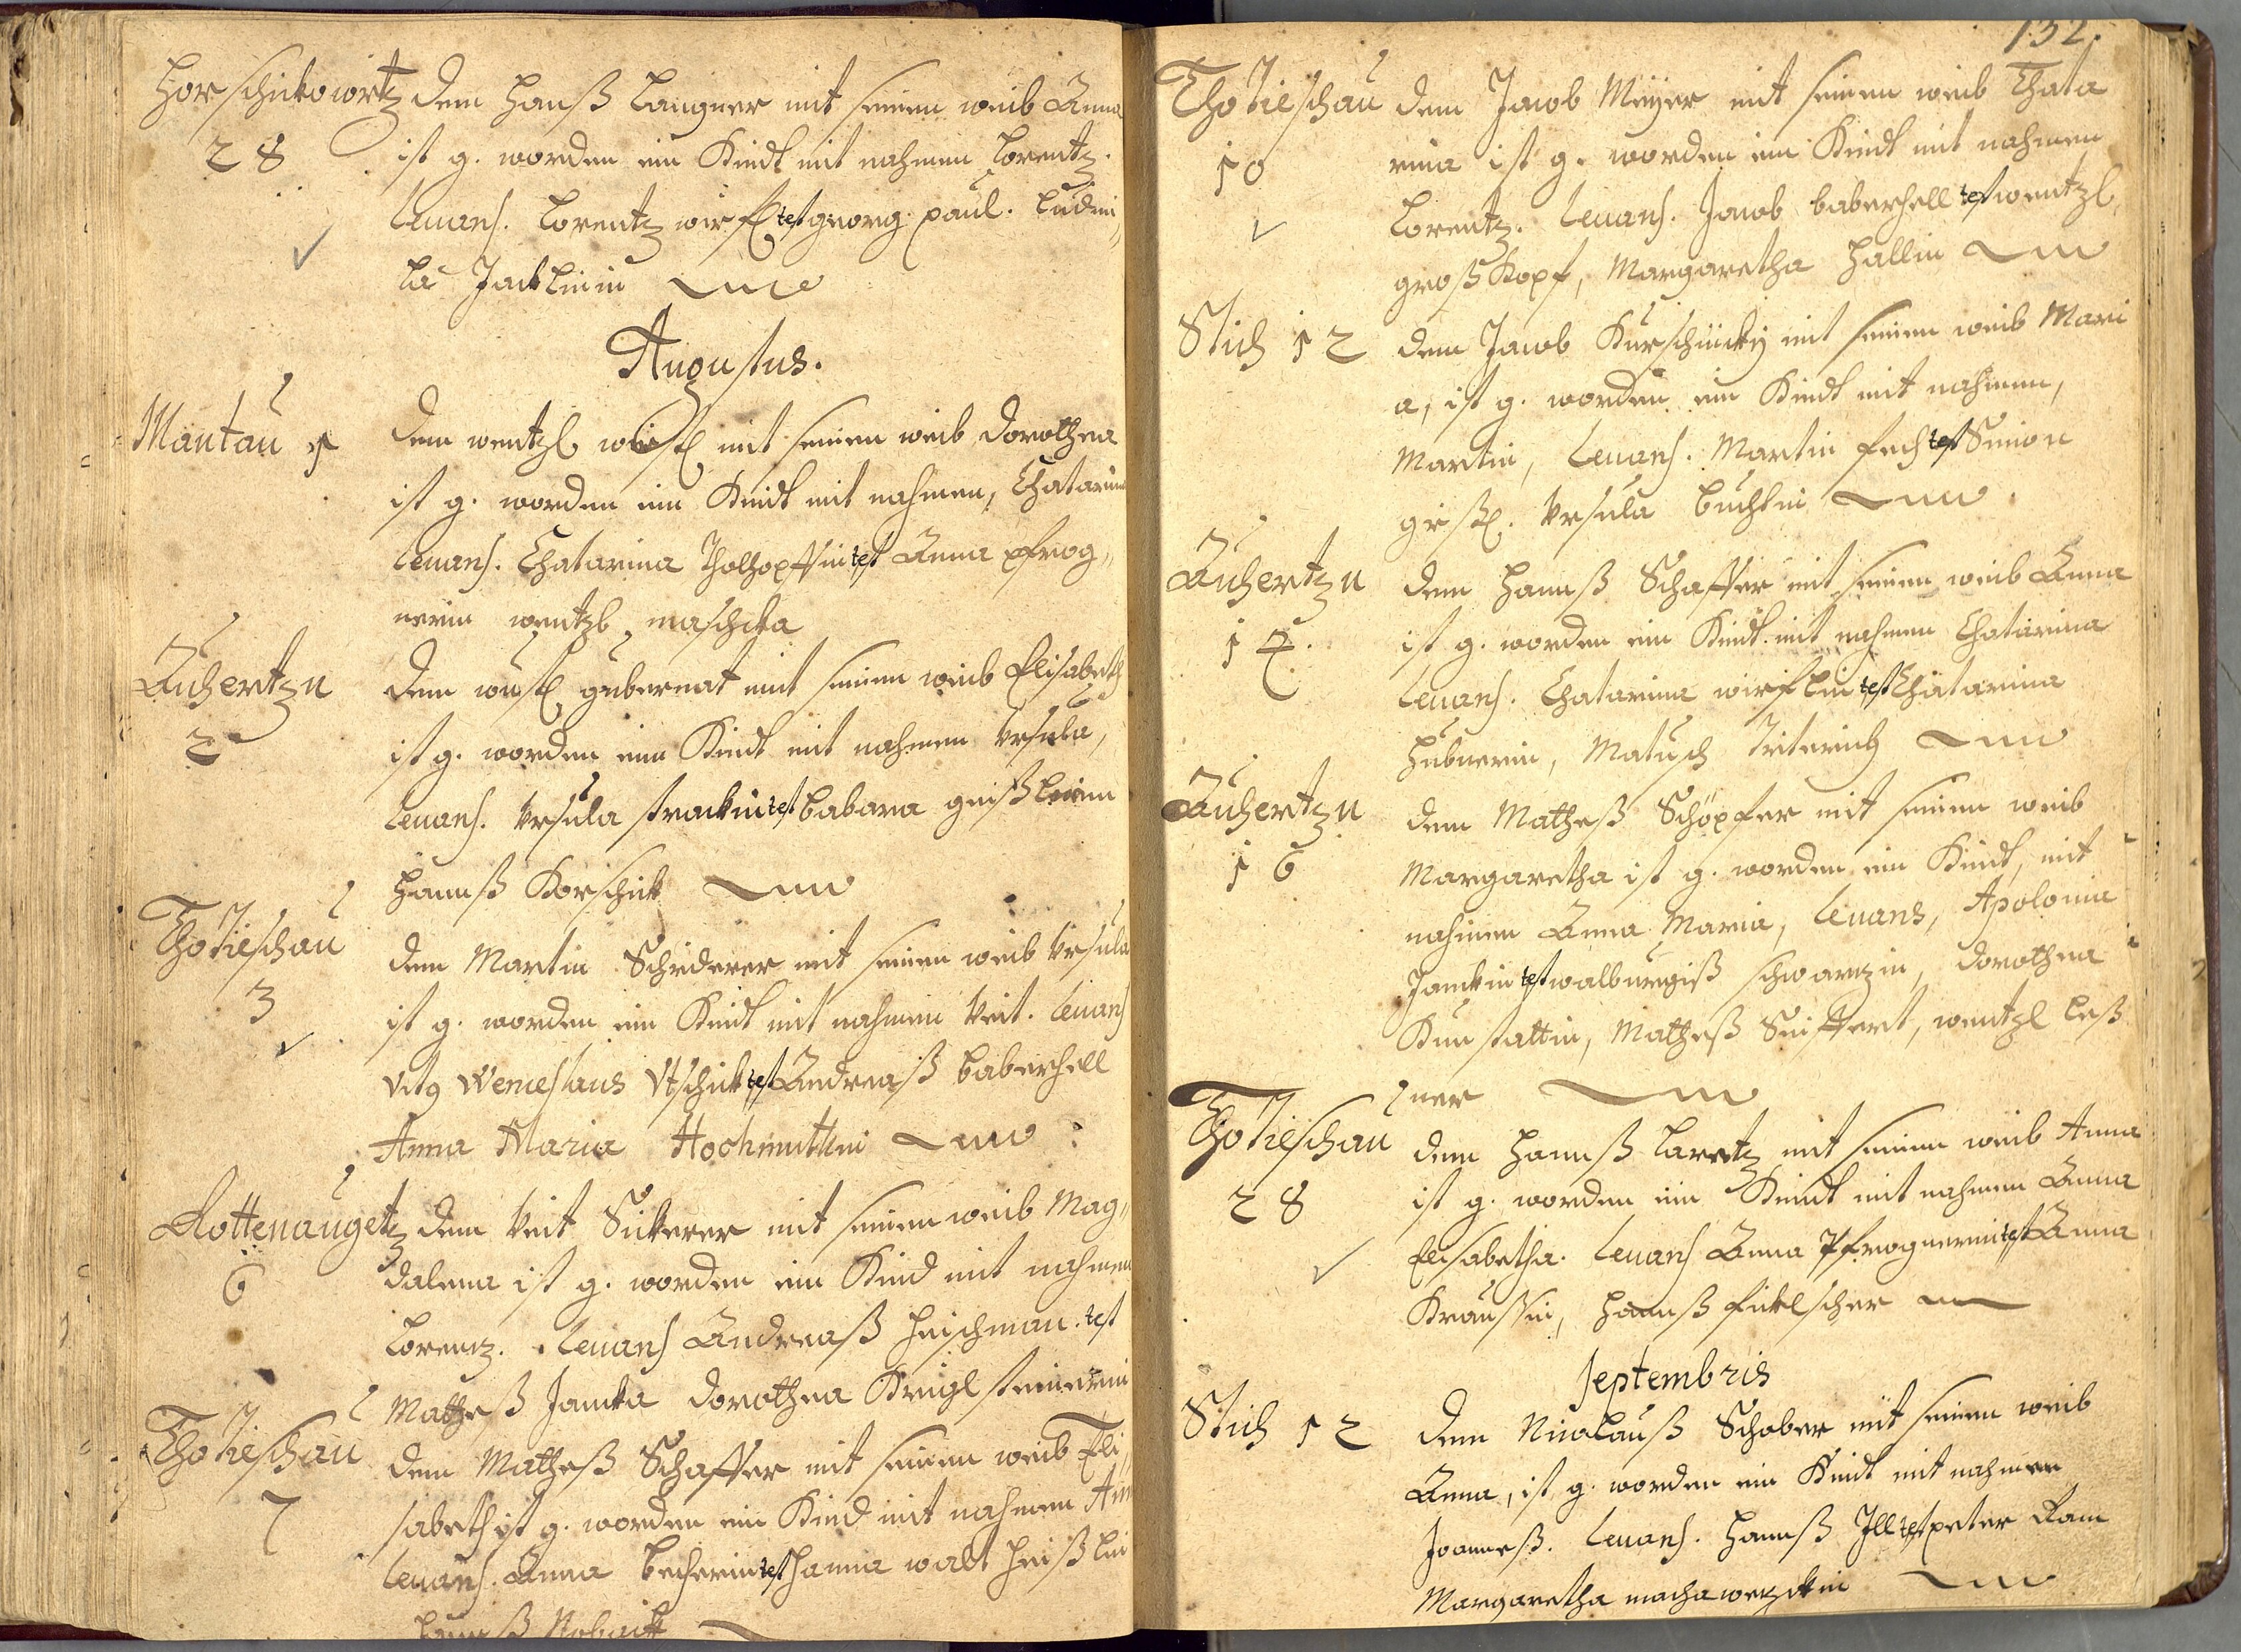 Horschikowitz dem Hanß Langner mit seinem weib Anna
28 ist g. worden ein Kindt mit nahmen Lorentz.
Leuans. Lorentz test georg paul. Ludmi„
la Jacklinin
Augustus.
Mantau 1 dem wentzl mit seinem weib Dorothea
ist g. worden ein Kindt mit nahmen, Chatarina
Leuans. Chatarina test Anna pfrog„
nerin wentzl maschcka
Auhertzn dem gubernat mit seinem weib Elisabeth
2 ist g. worden ein Kindt mit nahmen Vrsula,
Leuans. Vrsula strackin test babara
Hannß Korschick
Chotieschau dem Martin Schiderer mit seinem weib Vrsula
3 ist g. worden ein Kindt mit nahmen Veit. Leuans
Wenceslaus test Andreaß baberschell
Anna Maria Hochmuthin
Rottenaugetz dem Veit Sickerer mit seinem weib Mag„
6 dalena ist g. worden ein Kind mit nahmen
Lorentz. Leuans Andreaß test
Matheß Jancka Dorothea
Chotieschau dem Matheß Schaffer mit seinem weib Eli„
7 sabeth ist g. worden ein Kind mit nahmen
Leuans. Anna becherin test
132.
Chotieschau dem Jacob Meyer mit seinem weib Chata
10 rina ist g. worden ein Kindt mit nahmen
Lorentz. Leuans. Jacob baberschell test wentzl
großkopf, Margaretha Hallin
Stich 12 dem Jacob Kurschücky mit seinem weib Mari
a, ist g. worden ein Kindt mit nahmen,
Martin, Leuans. Martin fech test Simon
Vrsula buchlin
Auhertzn dem Hannß Schaffer mit seinem weib Anna
ist g. worden ein Kindt mit nahmen Chatarina
Leuans. Chatarina test Chatarina
Hubnerin, Matusch
Auhertzn dem Matheß Schöpfer mit seinem weib
16 Margaretha ist g. worden ein Kindt, mit
nahmen Anna Maria, Leuans, Apolonia
Janckin test walburgiß schwartzin, Dorothea
Kunstattin, Matheß Seiffert, wentzl Leß
ner
Chotieschau dem Hannß Laretz mit seinem weib Anna
28 ist g. worden ein Kindt mit nahmen Anna
Elisabetha. Leuans Anna Pfrognerin test Anna
Kraussin, Hannß fickelscher
Septembris
Stich 12 dem Nicolauß Schober mit seinem weib
Anna, ist g. worden ein Kindt mit nahmen
Joanneß. Leuans. Hannß Ill test peter Ram
Margaretha